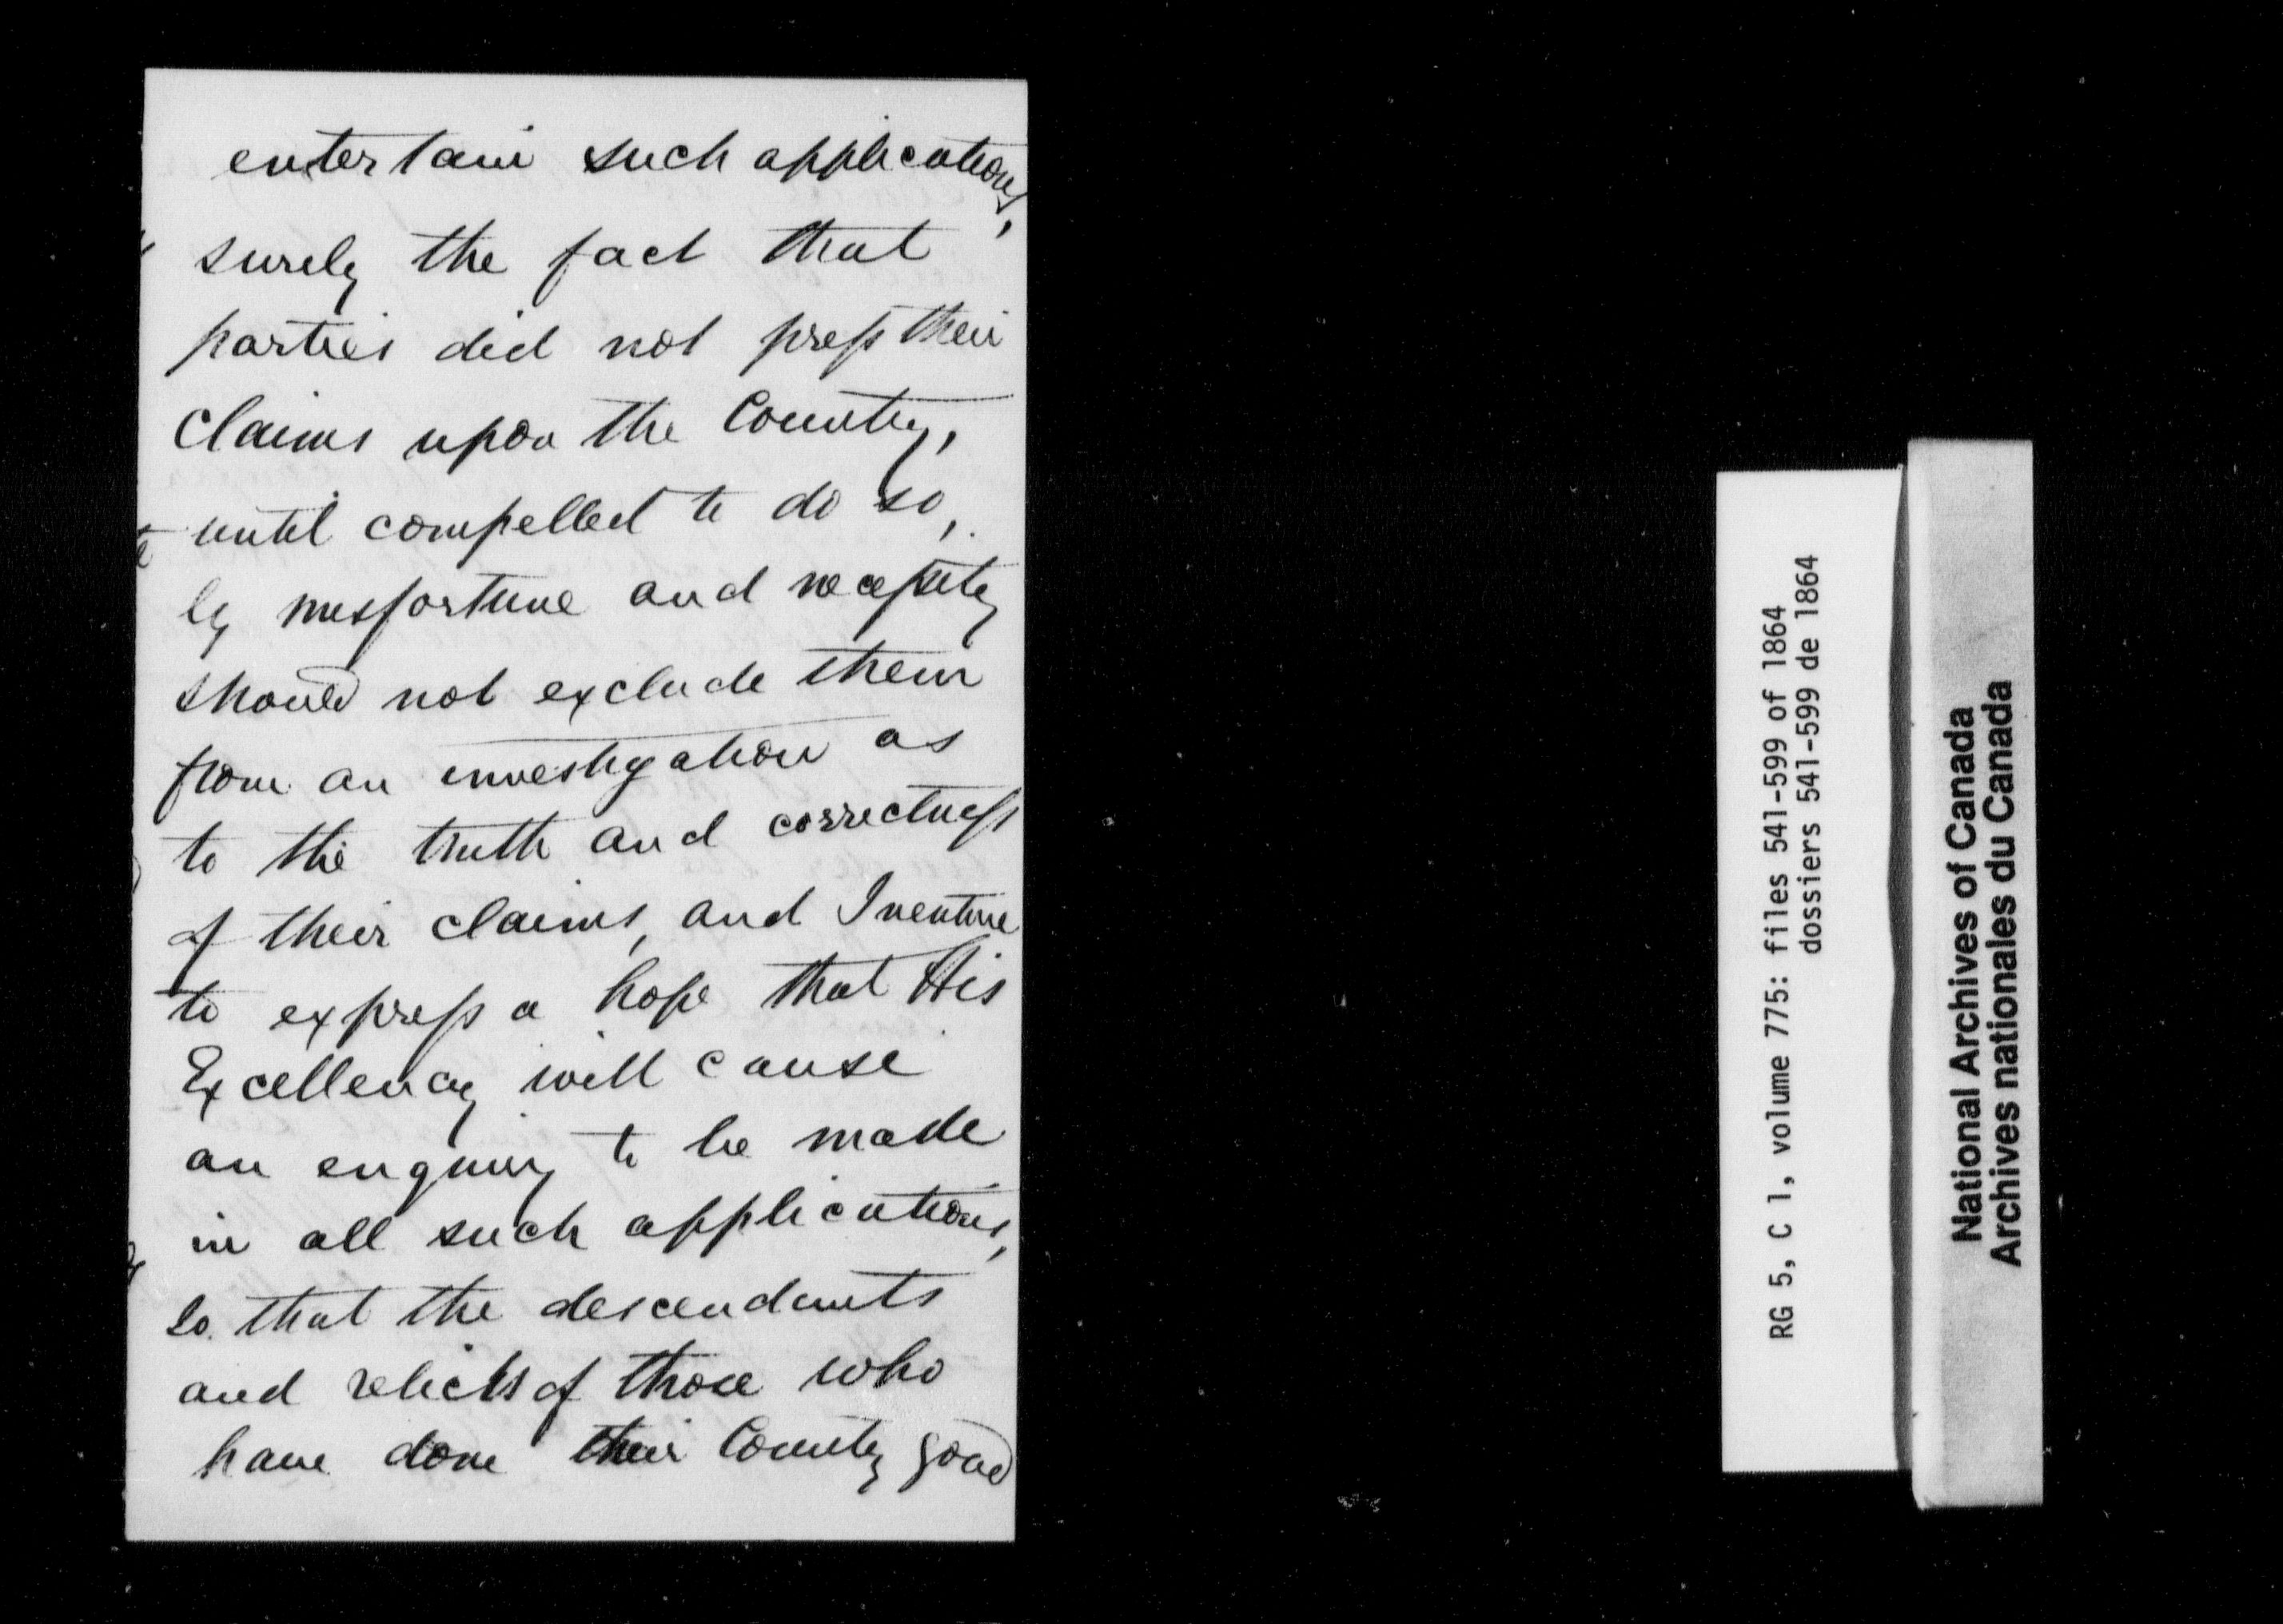 entertain such applications,
surely the fact that
parties did not press their
Claims upon the Country,
until compelled to do so,
by misfortune and necessity
should not exclude them
from an investigation as
to the truth and correctness
of their claims, and I venture
to express a hope that His
Excellency will cause
an enquiry to be made
in all such applications,
so that the descendants
and relicts of those who
have done their Country good
RG 5, C 1, volume 775: files 541-599 of 1864
dossiers 541-599 de 1864
National Archives of Canada
Archives nationales du Canada